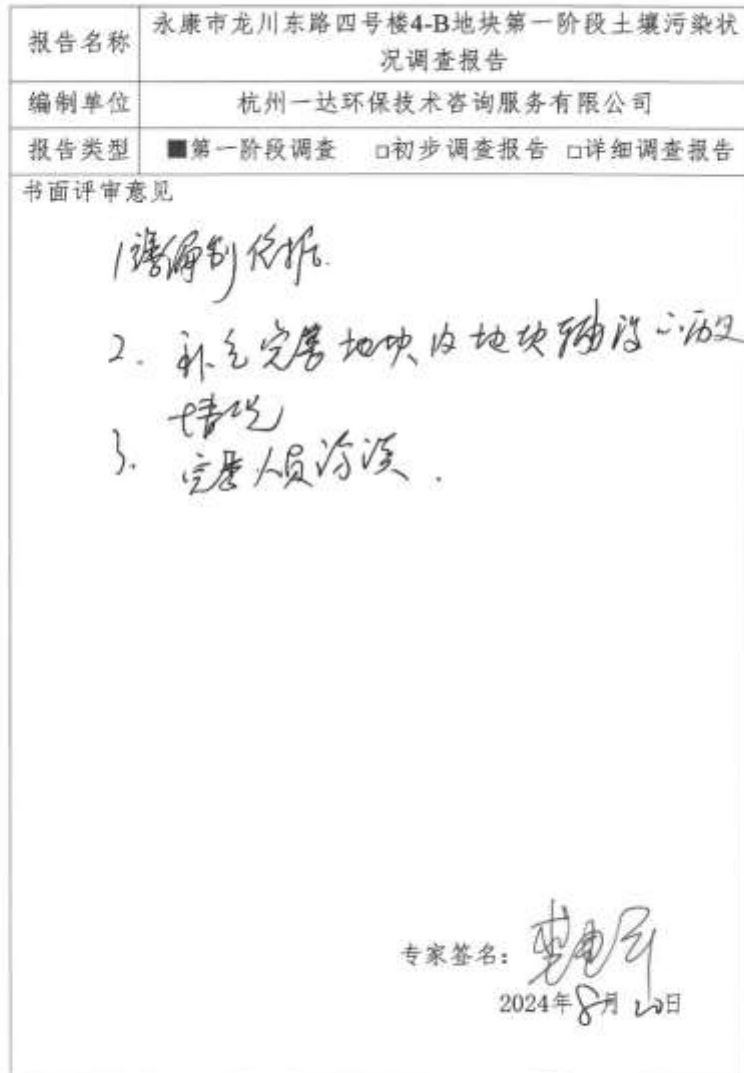 报告名称 永康市龙川东路四号楼4-B地块第一阶段土壤污染状
况调查报告
编制单位 杭州一达环保技术咨询服务有限公司
报告类型 ■第一阶段调查 □初步调查报告 □详细调查报告
书面评审意见
1 编制依据.
2. 补充完善地块及地块历史
情况
3. 完善人员访谈.
专家签名:
2024年8月20日